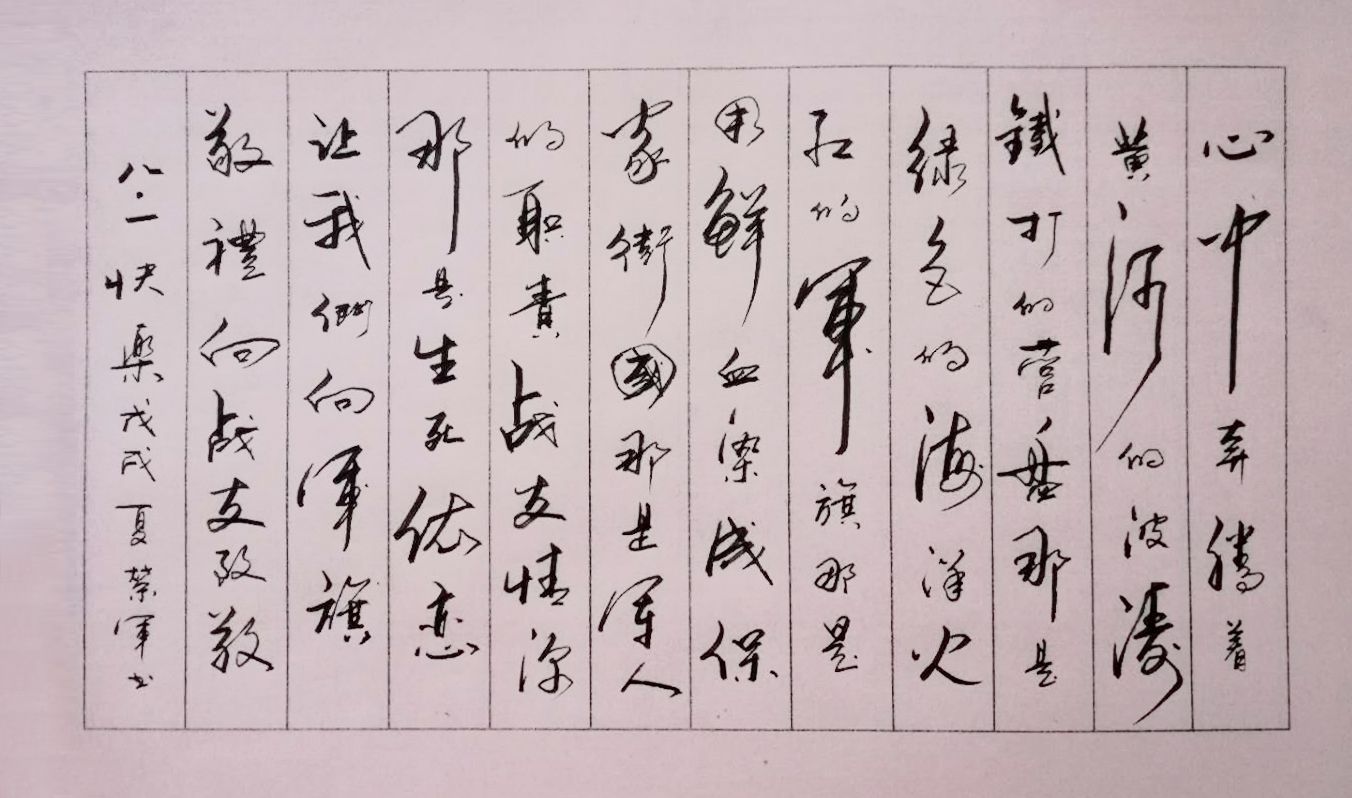 心中奔騰着
黄河的波濤
鐵打的营盘那是
绿色的海洋火
红的軍旗那是
用鮮血染成保
家衛國那是军人
的职責战友情深
那是生死依恋
让我們向軍旗
敬禮向战友致敬
八·一快樂戊戌夏蔡軍书